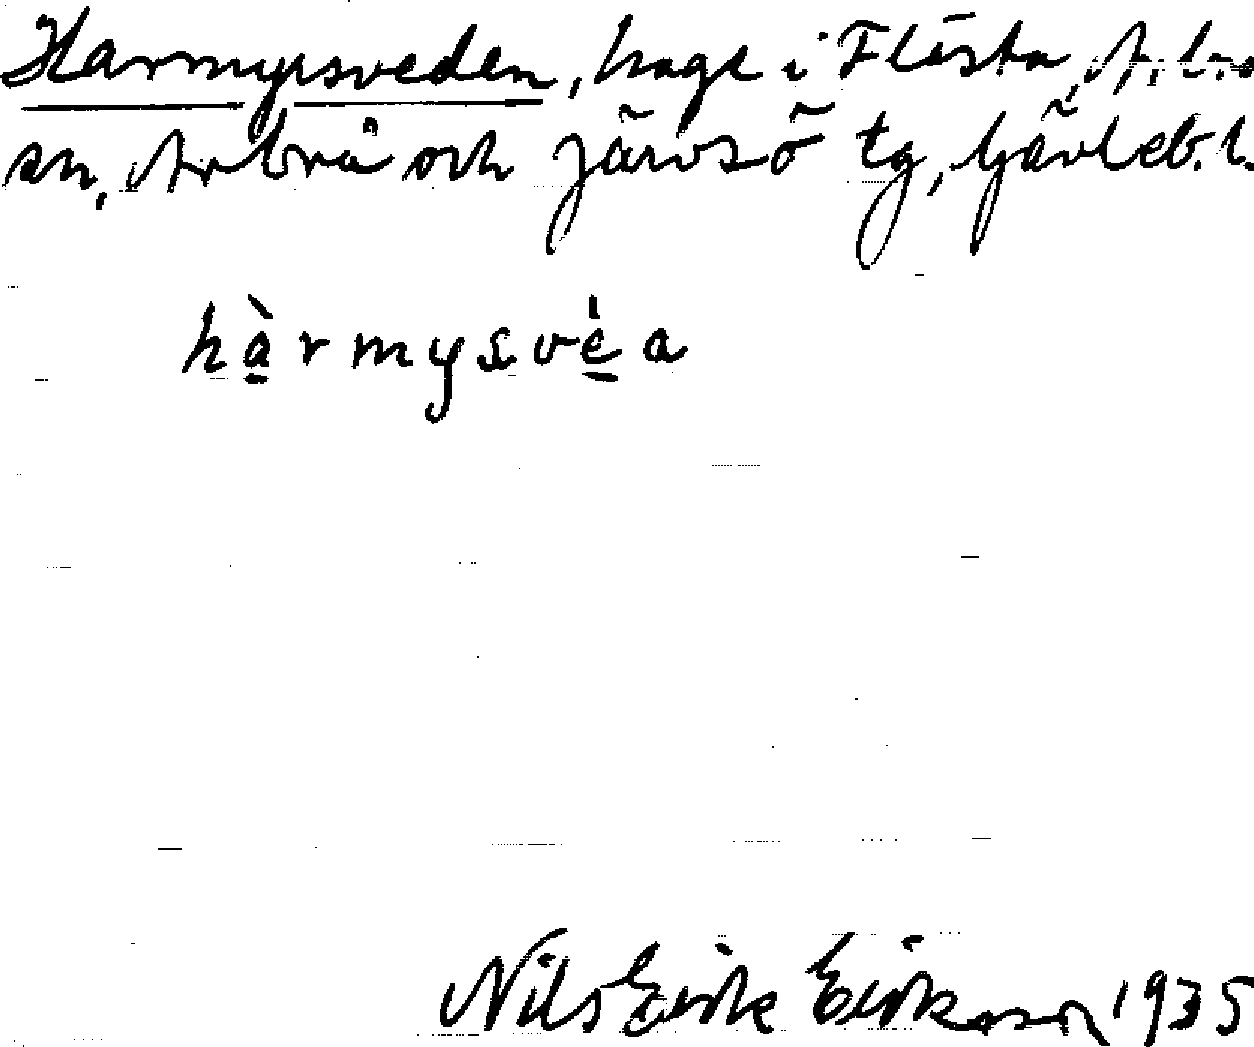 Harmyrsveden, hage i Flästa, Arbrå
sn, Arbrå och Järvsö tg, Gävleb. l.
hàrmysvéa
Nils Erik Eriksson 1935